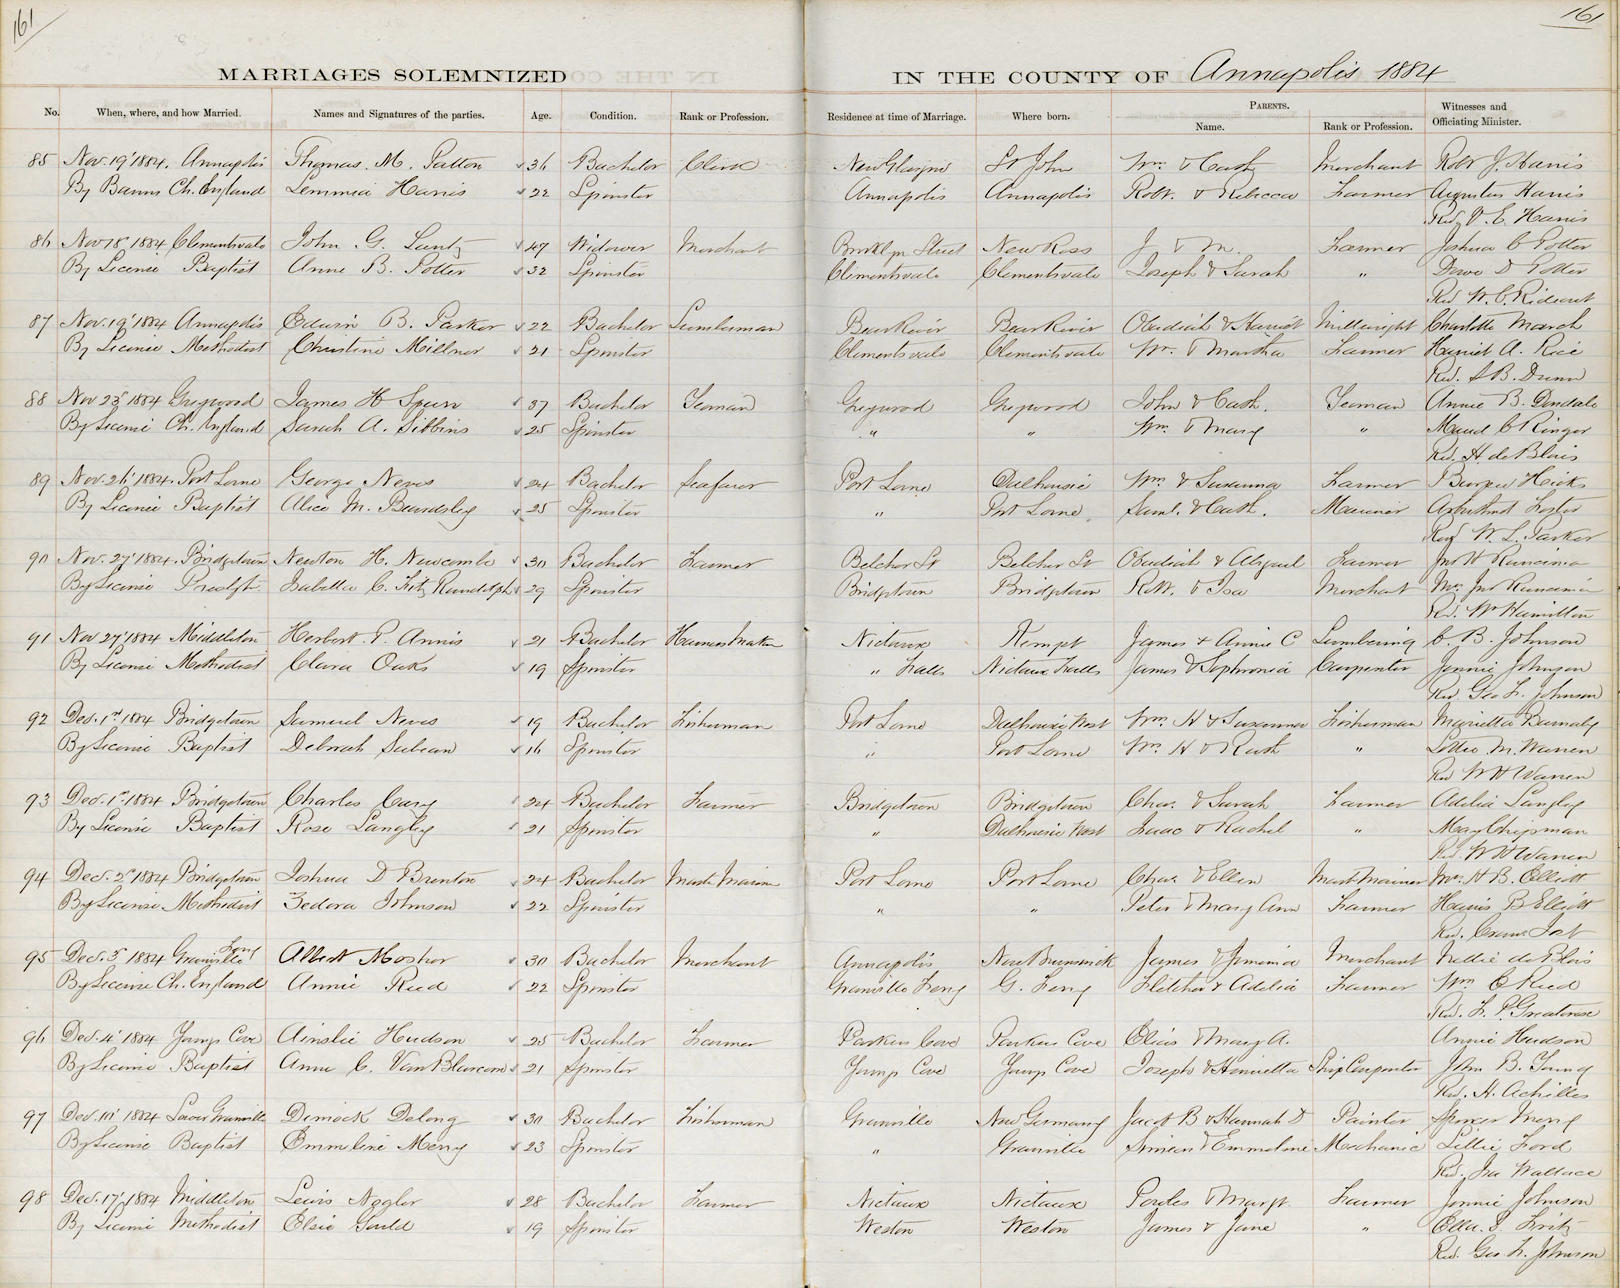 161
161
MARRIAGES SOLEMNIZED IN THE COUNTY OF Annapolis 1884
No. When, where, and how Married. Names and Signatures of the parties. Age. Condition. Rank or Profession. Residence at time of Marriage. Where born. PARENTS. Name. Rank or Profession. Witnesses and Officiating Minister.
85 Nov. 19' 1884. Annapolis Thomas. M. Patton 36 Bachelor Clerk New Glasgow St John Wm & Cath Merchant Robt J. Harris
By Banns Ch. England Lemmia Harris 22 Spinster Annapolis Annapolis Robt. & Rebecca Farmer Augustus Harris
Rev. V. E. Harris
86 Nov 18' 1884 Clementsvale John G. Lantz 47 Widower Merchant Brooklyn Street New Ross J & M. Farmer Joshua C Potter
By License Baptist Anne B. Potter 32 Spinster Clementsvale Clementsvale Joseph & Sarah " D Potter
Rev W. C. Rideout
87 Nov. 19' 1884 Annapolis Edwin B. Parker 22 Bachelor Lumberman Bear River Bear River Obadiah & Harriet Millwright Charlotte March
By License Methodist Christine Millner 21 Spinster Clementsvale Clementsvale Wm. & Martha Farmer Harriet A. Rice
Rev. S. B. Dunn
88 Nov 25' 1884 Greywood James H Spurr 37 Bachelor Yeoman Greywood Greywood John & Cath. Yeoman Annie B.
By License Ch. England Sarah A. Gibbins 25 Spinster " " Wm. & Mary " Maud C Ringer
Rev. H. de Blois
89 Nov. 26' 1884. Port Lorne George Neves 24 Bachelor Seafarer Port Lorne Dalhousie Wm & Susanna Farmer Burpee Hicks
By License Baptist Alice M. Beardsley 25 Spinster " Port Lorne Saml. & Cath. Mariner Foster
Rev W. L. Parker
90 Nov. 27' 1884. Bridgetown Newton H. Newcombe 30 Bachelor Farmer Belcher St Belcher St Obadiah & Abigail Farmer Jno H Runciman
By License Presbyt. Isabella C. Fitz Randolph 29 Spinster Bridgetown Bridgetown Robt. & Isa Merchant Mrs. Jno Runciman
Rev. Wm Hamilton
91 Nov 27' 1884 Middleton Herbert P. Annis 21 Bachelor Harness Maker Nictaux Kempt James & Annie C Lumbering C. B. Johnson
By License Methodist Clara Oaks 19 Spinster " Falls Nictaux Falls James & Sophronia Carpenter Jennie Johnson
Rev Geo F. Johnson
92 Dec. 1st 1884 Bridgetown Samuel Neves 19 Bachelor Fisherman Port Lorne Dalhousie West Wm. H & Susanna Fisherman Marietta Barnaby
By License Baptist Deborah Sabean 16 Spinster " Port Lorne Wm H & Ruth " Lottie M. Warren
Rev W H Warren
93 Dec. 1st 1884 Bridgetown Charles Cary 24 Bachelor Farmer Bridgetown Bridgetown Chas. & Sarah Farmer Adelia Langley
By License Baptist Rose Langley 21 Spinster " Dalhousie West Isaac & Rachel " May Chipman
Rev. W H Warren
94 Dec. 2d 1884 Bridgetown Joshua D Brenton 24 Bachelor Mastr Mariner Port Lorne Port Lorne Chas. & Ellen Mastr Mariner Mrs. H B. Elliott
By License Methodist Zedora Johnson 22 Spinster " " Peter & Mary Ann Farmer Harris B Elliott
Rev.
95 Dec. 3d 1884 Granville Ferry Albert Mosher 30 Bachelor Merchant Annapolis New Brunswick James & Jemima Merchant Nellie de Blois
By License Ch. England Annie Reed 22 Spinster Granville Ferry G. Ferry Fletcher & Adelia Farmer Wm C Reed
Rev. F. P. Greatorex
96 Dec. 4' 1884 Youngs Cove Ainslie Hudson 25 Bachelor Farmer Parkers Cove Parkers Cove Elias & Mary A. Annie Hudson
By License Baptist Anne C. VanBlarcom 21 Spinster Youngs Cove Youngs Cove Joseph & Henrietta Ship Carpenter John B. Young
Rev. H. Achilles
97 Dec. 10' 1884 Lower Granville Dimock Delong 30 Bachelor Fisherman Granville New Germany Jacob B & Hannah D Painter Spencer Merry
By License Baptist Emmeline Merry 23 Spinster " Granville Simeon & Emmeline Mechanic Lillie Ford
Rev. Isa Wallace
98 Dec. 17' 1884 Middleton Lewis Nogler 28 Bachelor Farmer Nictaux Nictaux & Margt. Farmer Jennie Johnson
By License Methodist Elsie Gould 19 Spinster Weston Weston James & Jane " Ella. J. Fritz
Rev. Geo F. Johnson